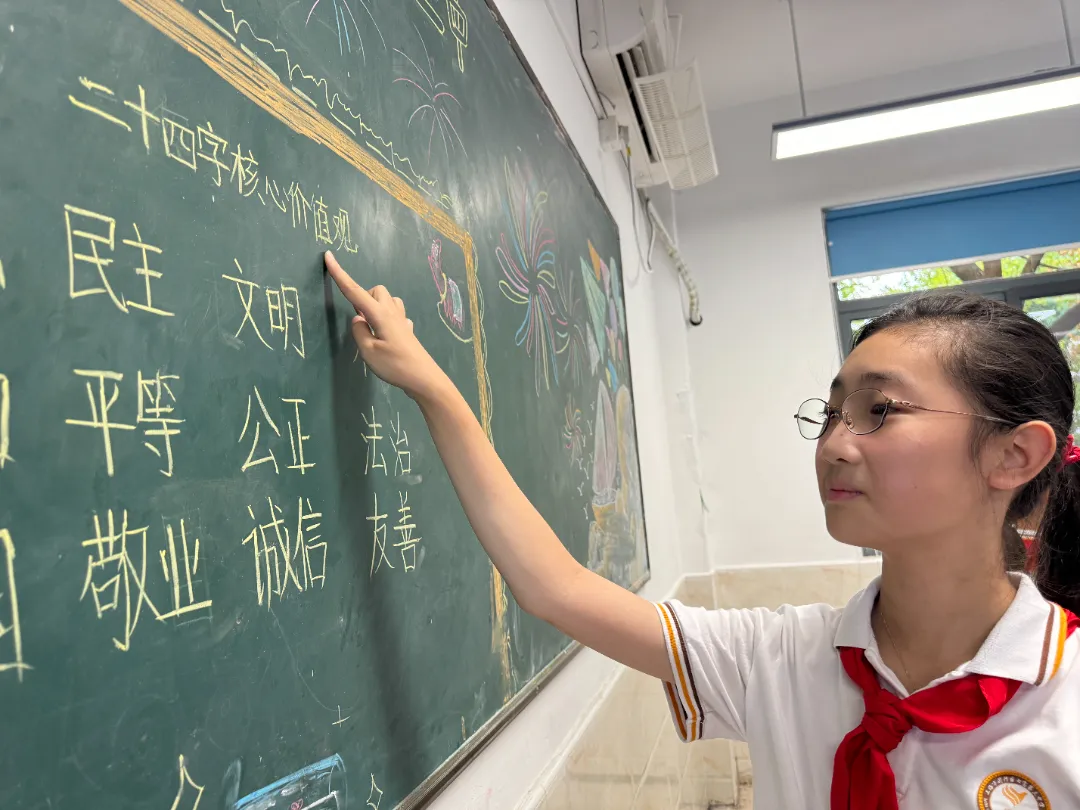 二十四字核心价值观
民主 文明
平等 公正 法治
敬业 诚信 友善